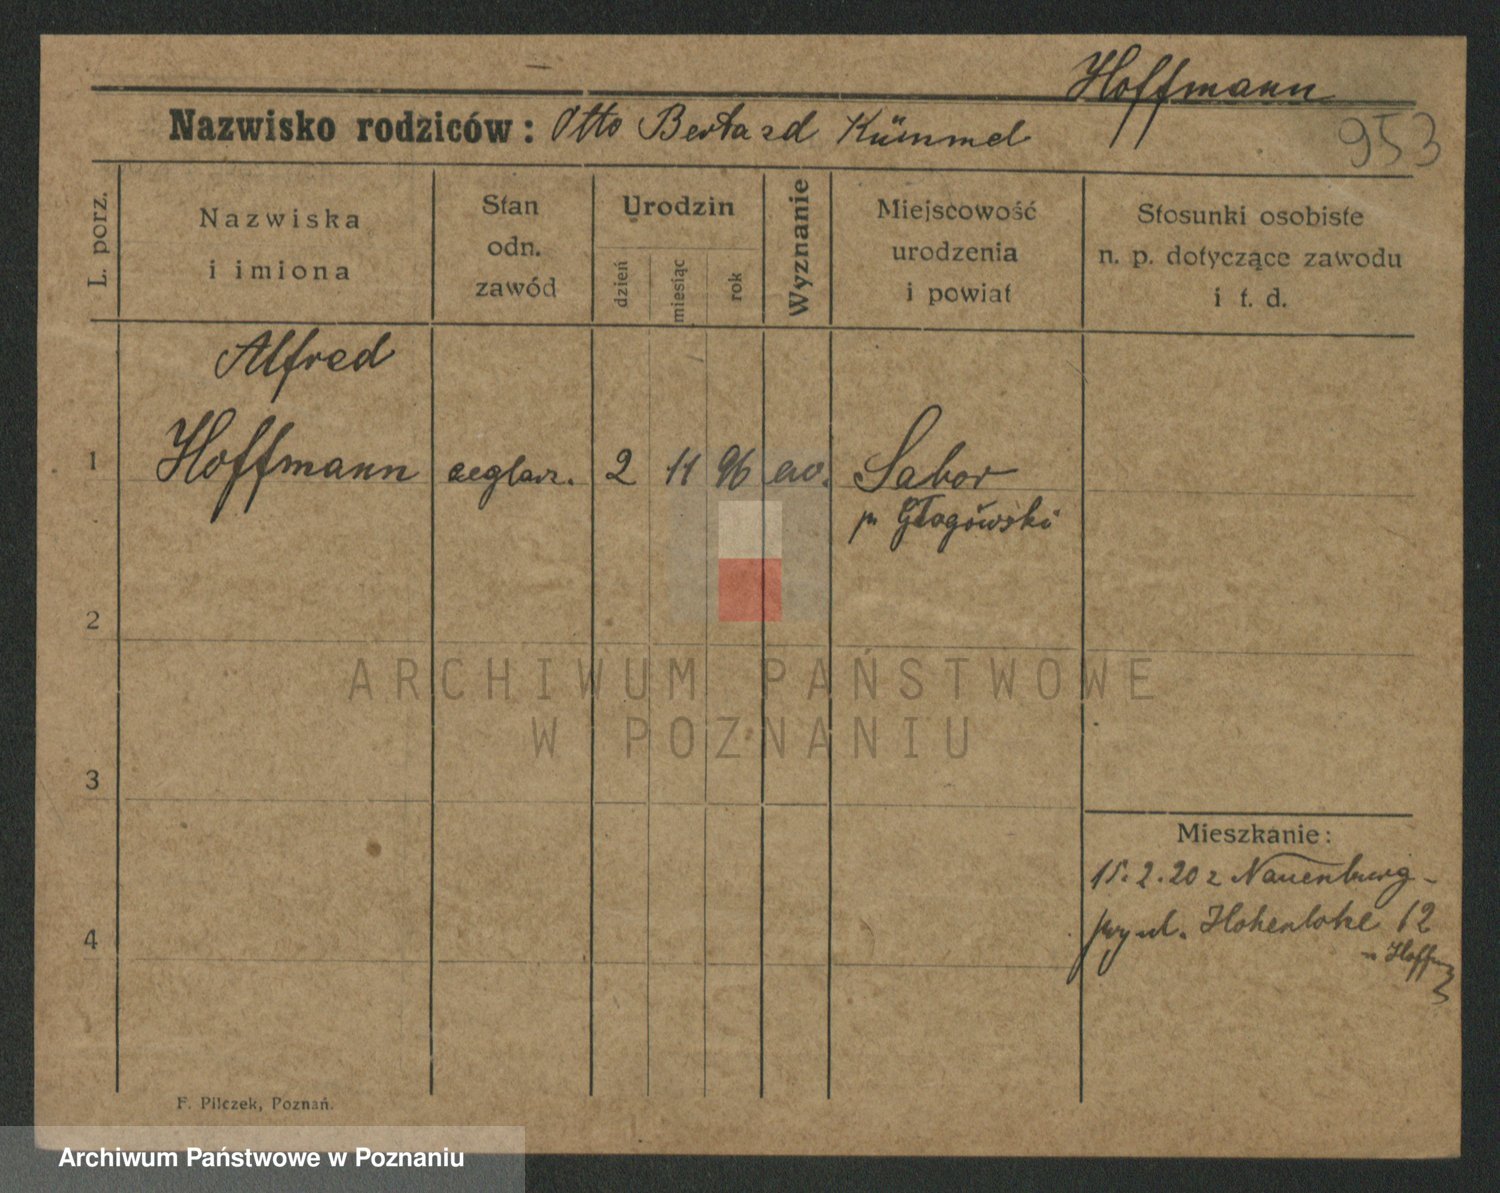 Hoffmann
953
Nazwisko rodziców: Otto Berta zd Kümmel
L. porz.
Nazwiska
i imiona
Stan
odn.
zawód
Urodzin
dzień
miesiąc
rok
Wyznanie
Miejscowość
urodzenia
i powiat
Stosunki osobiste
n. p. dotyczące zawodu
i t. d.
Alfred
1 Hoffmann zeglarz. 2 11 96 ew. Sabor
p. Głogówski
2
3
4
Mieszkanie:
15.2.20 z Nauenburg
Hohenlohe 12
Hoffm
F. Pilczek, Poznań.
ARCHIWUM PAŃSTWOWE
W POZNANIU
Archiwum Państwowe w Poznaniu